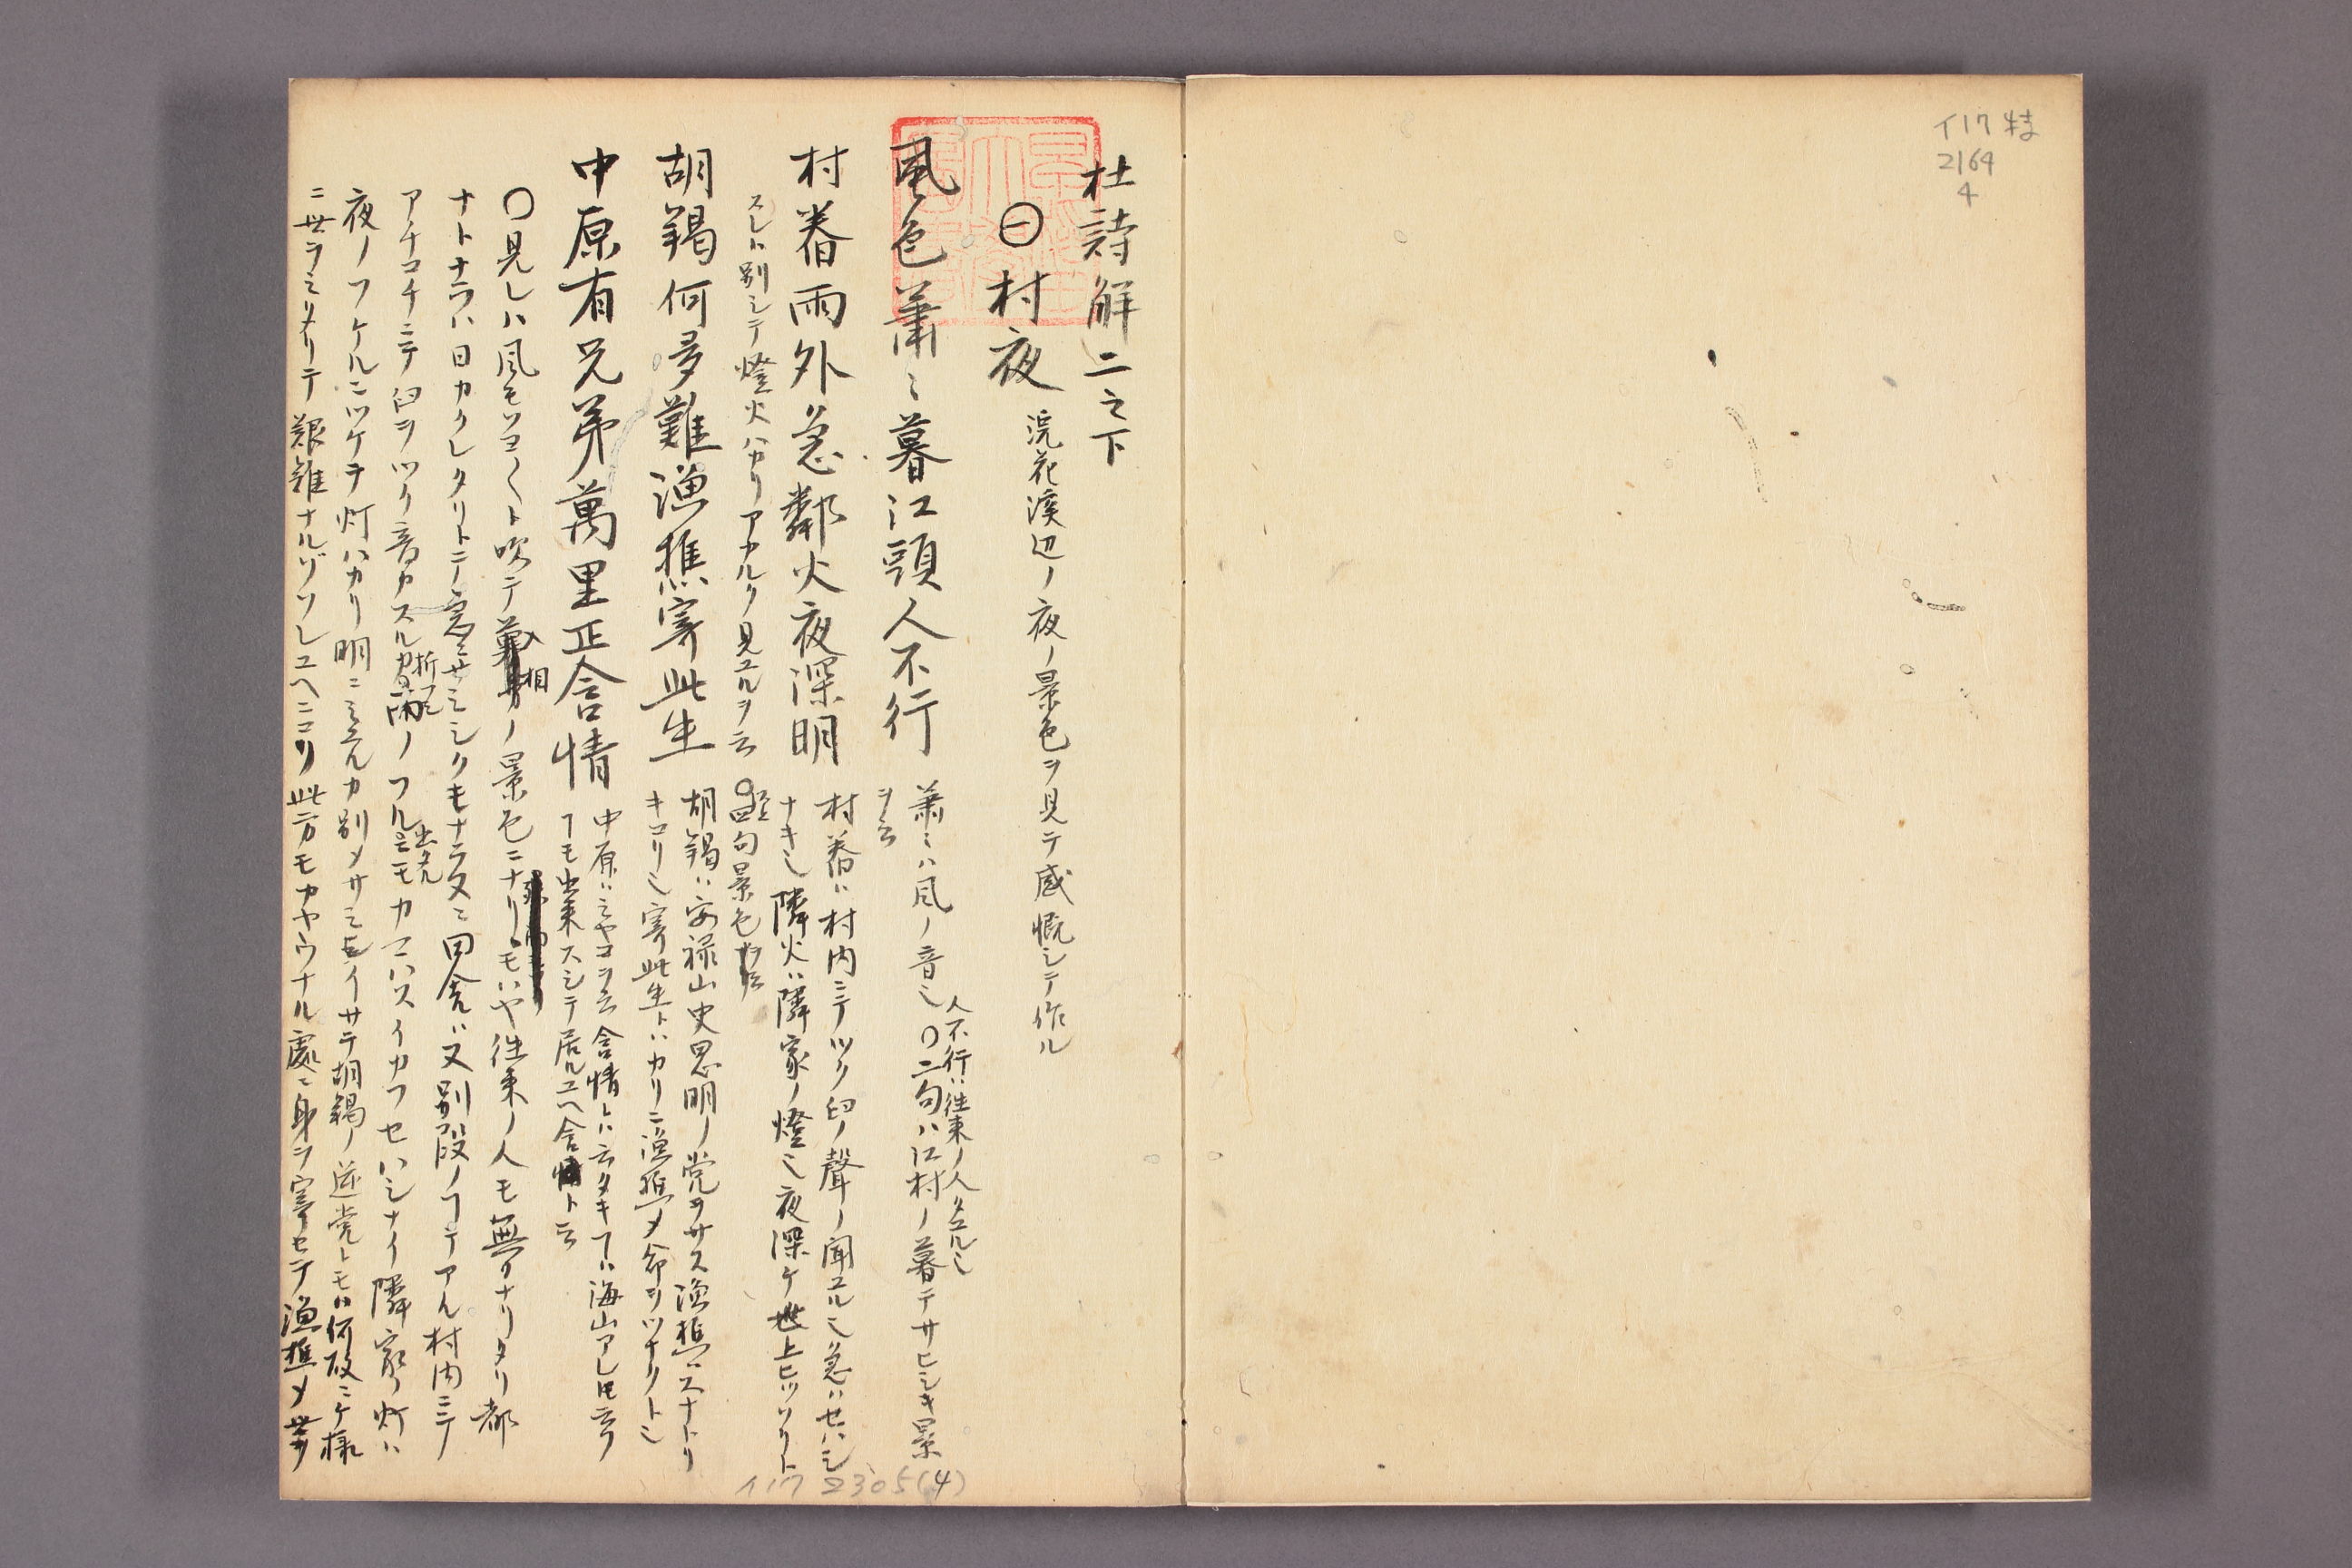 イ17 特
2164
4
杜詩解二之下
㊀村夜 浣花溪辺ノ夜ノ景色ヲ見テ感慨シテ作ル
風色蕭〻暮江頭人不行 蕭〻ハ風ノ音也 人不行ハ往来ノ人タユル也 〇二句ハ江村ノ暮テサヒシキ景
ヲ云
村舂雨外急鄰火夜深明 村舂ハ村内ニテツク臼ノ聲ノ聞ユル也急ハセハシ
ナキ也隣火ハ隣家ノ燈也夜深ケ世上ヒツソリト
スレハ別シテ燈火ハカリアカルク見ユルヲ云
句景色
胡羯何多難漁樵寄此生 胡羯ハ安禄山史思明ノ党ヲサス漁樵ハスナトリ
キコリ也寄此生トハカリニ漁樵メ命ヲツナクト也
中原有兄弟萬里正含情 中原ハミヤコヲ云含情トハ云タキヿハ海山アレ𪜈云フ
ヿモ出来スシテ居ルユヘ含情ト云
〇見レハ風モソヨ〱ト吹テ入相ノ景色ニナリモハヤ往来ノ人モ無クナリタリ都
ナトナラハ日カクレタリトテ急ニサミシクモナラヌニ田舎ハ又別段ノヿテアル村内ニテ
アチコチニテ臼ヲツク音カスル折フシ雨ノフルニモカマハスイカフセハシナイ隣家ノ灯ハ
夜ノフケルニツケテ灯ハカリ明ニミエルカ別メサミシイサテ胡羯ノ逆党トモハ何故ニケ様
ニ世ヲミタリテ艱難ナルゾソレユヘニコソ此方モカヤウナル處ニ身ヲ寄セテ漁樵メ世ヲ
イ17 2305(4)